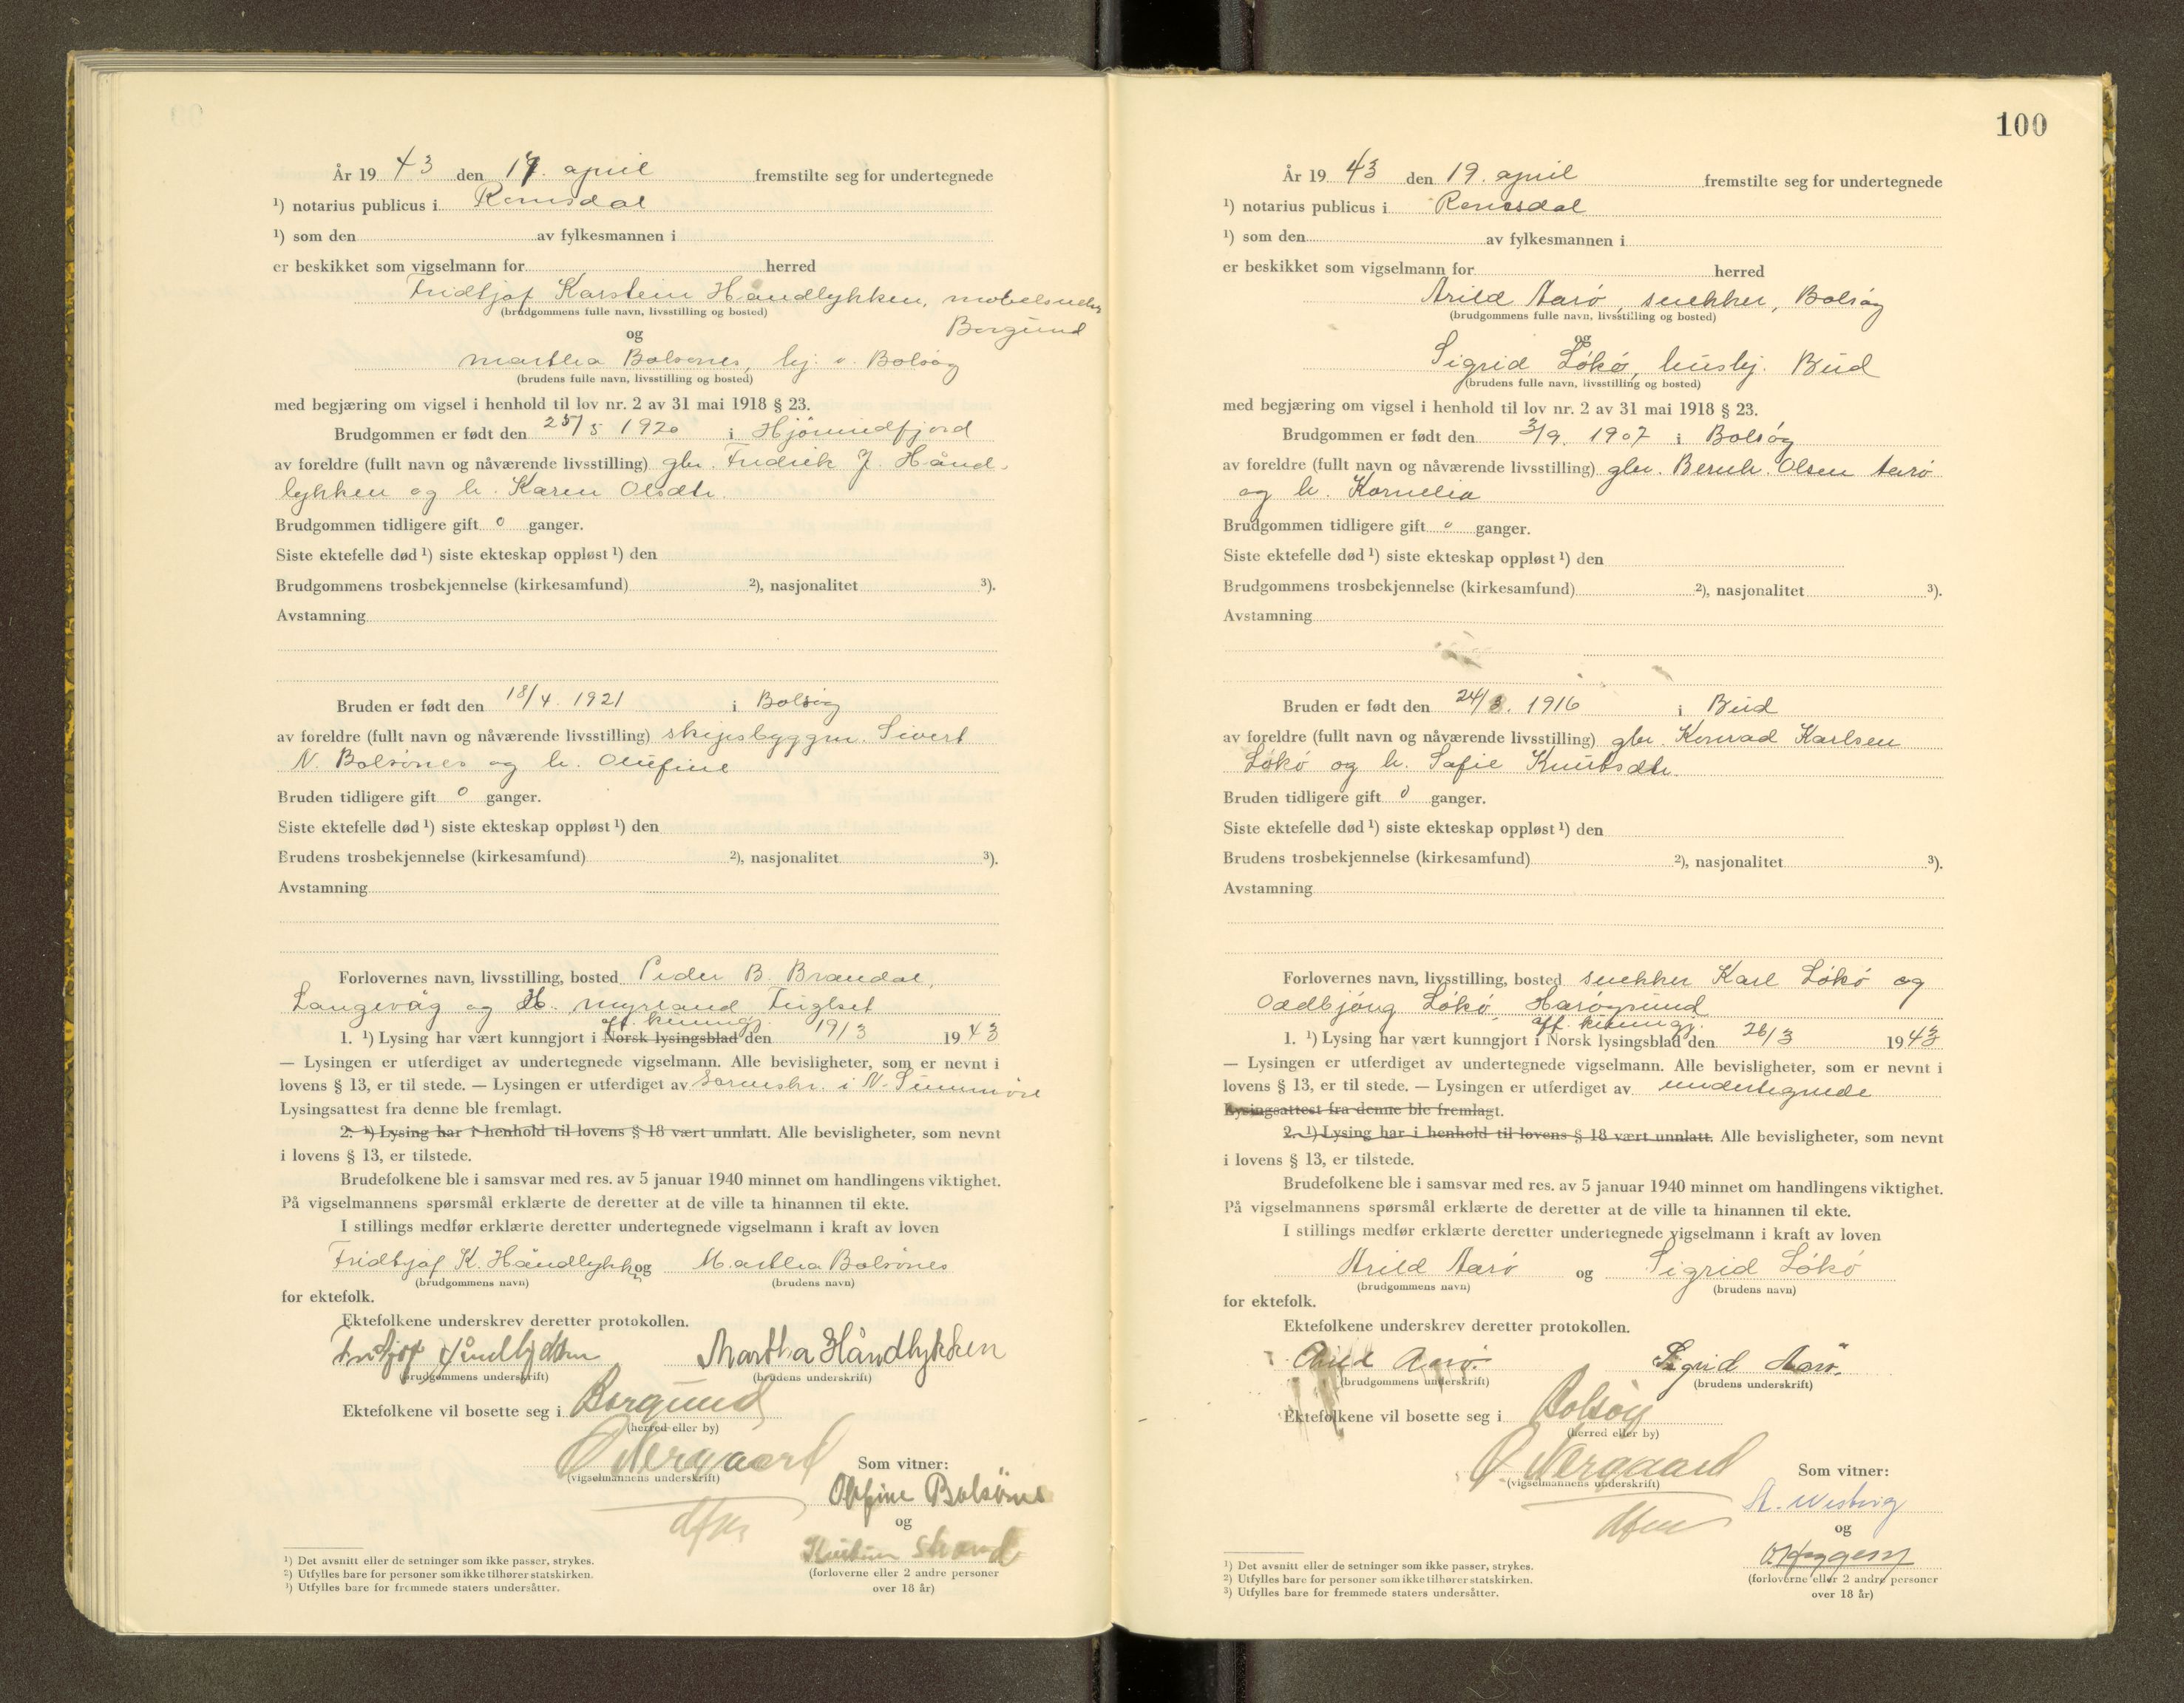 År 19 43 den 17. april fremstilte seg for undertegnede
¹) notarius publicus i Romsdal
¹) som den av fylkesmannen i
er beskikket som vigselmann for herred
Fridtjof Karstein Håndlykken, møbelsnekker
(brudgommens fulle navn, livsstilling og bosted)
Borgund
og
Martha Bolsønes, hj. v. Bolsøy
(brudens fulle navn, livsstilling og bosted)
med begjæring om vigsel i henhold til lov nr. 2 av 31 mai 1918 § 23.
Brudgommen er født den 25/5 1920 i Hjørundfjord
av foreldre (fullt navn og nåværende livsstilling) gbr. Fredrik J. Hånd-
lykken og h. Karen Olsdtr.
Brudgommen tidligere gift 0 ganger.
Siste ektefelle død ¹) siste ekteskap oppløst ¹) den
Brudgommens trosbekjennelse (kirkesamfund) ²), nasjonalitet ³).
Avstamning
Bruden er født den 18/4 1921 i Bolsøy
av foreldre (fullt navn og nåværende livsstilling) skipsbyggm. Sivert
N. Bolsønes og h. Olufine
Bruden tidligere gift 0 ganger.
Siste ektefelle død ¹) siste ekteskap oppløst ¹) den
Brudens trosbekjennelse (kirkesamfund) ²), nasjonalitet ³).
Avstamning
Forlovernes navn, livsstilling, bosted Peder B. Brandal,
Langevåg og H. Myrland Fuglset
off. kunngj.
1. ¹) Lysing har vært kunngjort i Norsk lysingsblad den 19/3 19 43
— Lysingen er utferdiget av undertegnede vigselmann. Alle bevisligheter, som er nevnt i
lovens § 13, er til stede. — Lysingen er utferdiget av Sorenskr. i N. Sunnmøre
Lysingsattest fra denne ble fremlagt.
2. ¹) Lysing har i henhold til lovens § 18 vært unnlatt. Alle bevisligheter, som nevnt
i lovens § 13, er tilstede.
Brudefolkene ble i samsvar med res. av 5 januar 1940 minnet om handlingens viktighet.
På vigselmannens spørsmål erklærte de deretter at de ville ta hinannen til ekte.
I stillings medfør erklærte deretter undertegnede vigselmann i kraft av loven
Fridtjof K. Håndlykken og Martha Bolsønes
(brudgommens navn) (brudens navn)
for ektefolk.
Ektefolkene underskrev deretter protokollen.
Fritjof Håndlykken Martha Håndlykken
(brudgommens underskrift) (brudens underskrift)
Ektefolkene vil bosette seg i Borgund
(herred eller by)
O Nergaard
(vigselmannens underskrift)
Som vitner:
Olufine Bolsønes
og
Strand
(forloverne eller 2 andre personer
over 18 år)
¹) Det avsnitt eller de setninger som ikke passer, strykes.
²) Utfylles bare for personer som ikke tilhører statskirken.
³) Utfylles bare for fremmede staters undersåtter.
100
År 19 43 den 19. april fremstilte seg for undertegnede
¹) notarius publicus i Romsdal
¹) som den av fylkesmannen i
er beskikket som vigselmann for herred
Arild Aarø, snekker, Bolsøy
(brudgommens fulle navn, livsstilling og bosted)
og
Sigrid Løkø, hushj. Bud
(brudens fulle navn, livsstilling og bosted)
med begjæring om vigsel i henhold til lov nr. 2 av 31 mai 1918 § 23.
Brudgommen er født den 3/9. 1907 i Bolsøy
av foreldre (fullt navn og nåværende livsstilling) gbr. Bernh. Olsen Aarø
og h. Kornelia
Brudgommen tidligere gift 0 ganger.
Siste ektefelle død ¹) siste ekteskap oppløst ¹) den
Brudgommens trosbekjennelse (kirkesamfund) ²), nasjonalitet ³).
Avstamning
Bruden er født den 24/8. 1916 i Bud
av foreldre (fullt navn og nåværende livsstilling) gbr. Konrad Karlsen
Løkø og h. Safie Knutsdtr.
Bruden tidligere gift 0 ganger.
Siste ektefelle død ¹) siste ekteskap oppløst ¹) den
Brudens trosbekjennelse (kirkesamfund) ²), nasjonalitet ³).
Avstamning
Forlovernes navn, livsstilling, bosted snekker Karl Løkø og
Oddbjørg Løkø, Harøysund
off. kunngj.
1. ¹) Lysing har vært kunngjort i Norsk lysingsblad den 26/3 19 43
— Lysingen er utferdiget av undertegnede vigselmann. Alle bevisligheter, som er nevnt i
lovens § 13, er til stede. — Lysingen er utferdiget av undertegnede
Lysingsattest fra denne ble fremlagt.
2. ¹) Lysing har i henhold til lovens § 18 vært unnlatt. Alle bevisligheter, som nevnt
i lovens § 13, er tilstede.
Brudefolkene ble i samsvar med res. av 5 januar 1940 minnet om handlingens viktighet.
På vigselmannens spørsmål erklærte de deretter at de ville ta hinannen til ekte.
I stillings medfør erklærte deretter undertegnede vigselmann i kraft av loven
Arild Aarø og Sigrid Løkø
(brudgommens navn) (brudens navn)
for ektefolk.
Ektefolkene underskrev deretter protokollen.
Arild Aarø. Sigrid Aarø.
(brudgommens underskrift) (brudens underskrift)
Ektefolkene vil bosette seg i Bolsøy
(herred eller by)
O Nergaard
(vigselmannens underskrift)
Som vitner:
og
(forloverne eller 2 andre personer
over 18 år)
¹) Det avsnitt eller de setninger som ikke passer, strykes.
²) Utfylles bare for personer som ikke tilhører statskirken.
³) Utfylles bare for fremmede staters undersåtter.